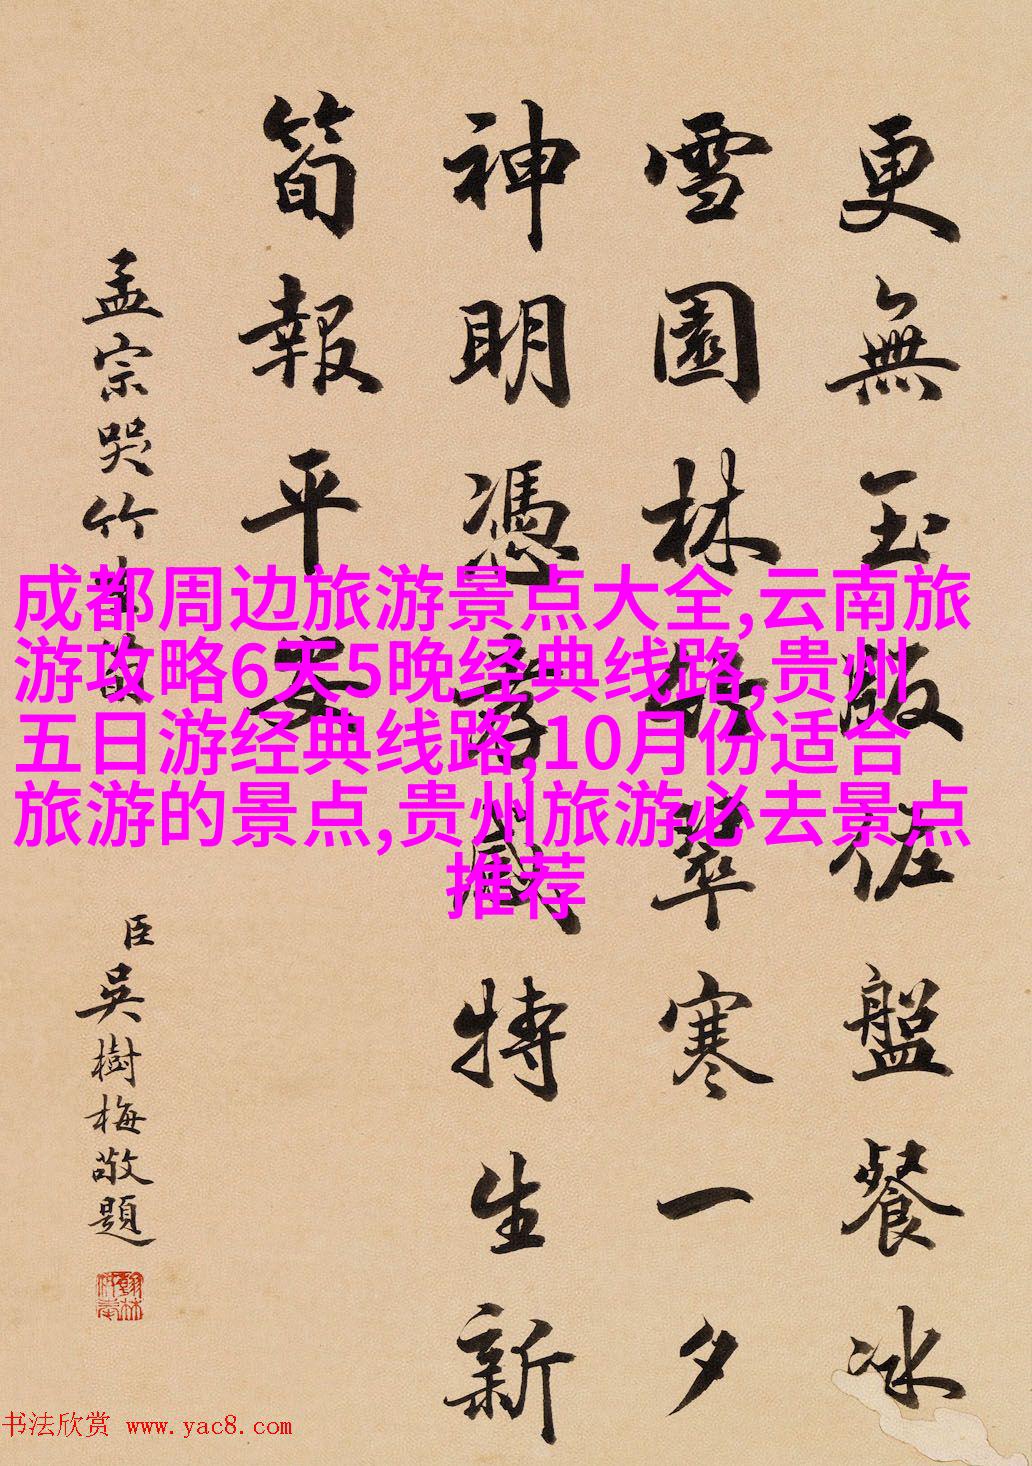 更無玉版佐盤餐冰
雪園林翠寒一夕
神明憑孝感特生新
筍報平安
孟宗哭竹生筍
臣吳樹梅敬題
成都周边旅游景点大全,云南旅
游攻略6天5晚经典线路,贵州
五日游经典线路,10月份适合
旅游的景点,贵州旅游必去景点
推荐
书法欣赏 www.yac8.com